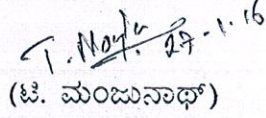 T. Manju
27-1-16
(ಟಿ. ಮಂಜುನಾಥ್)